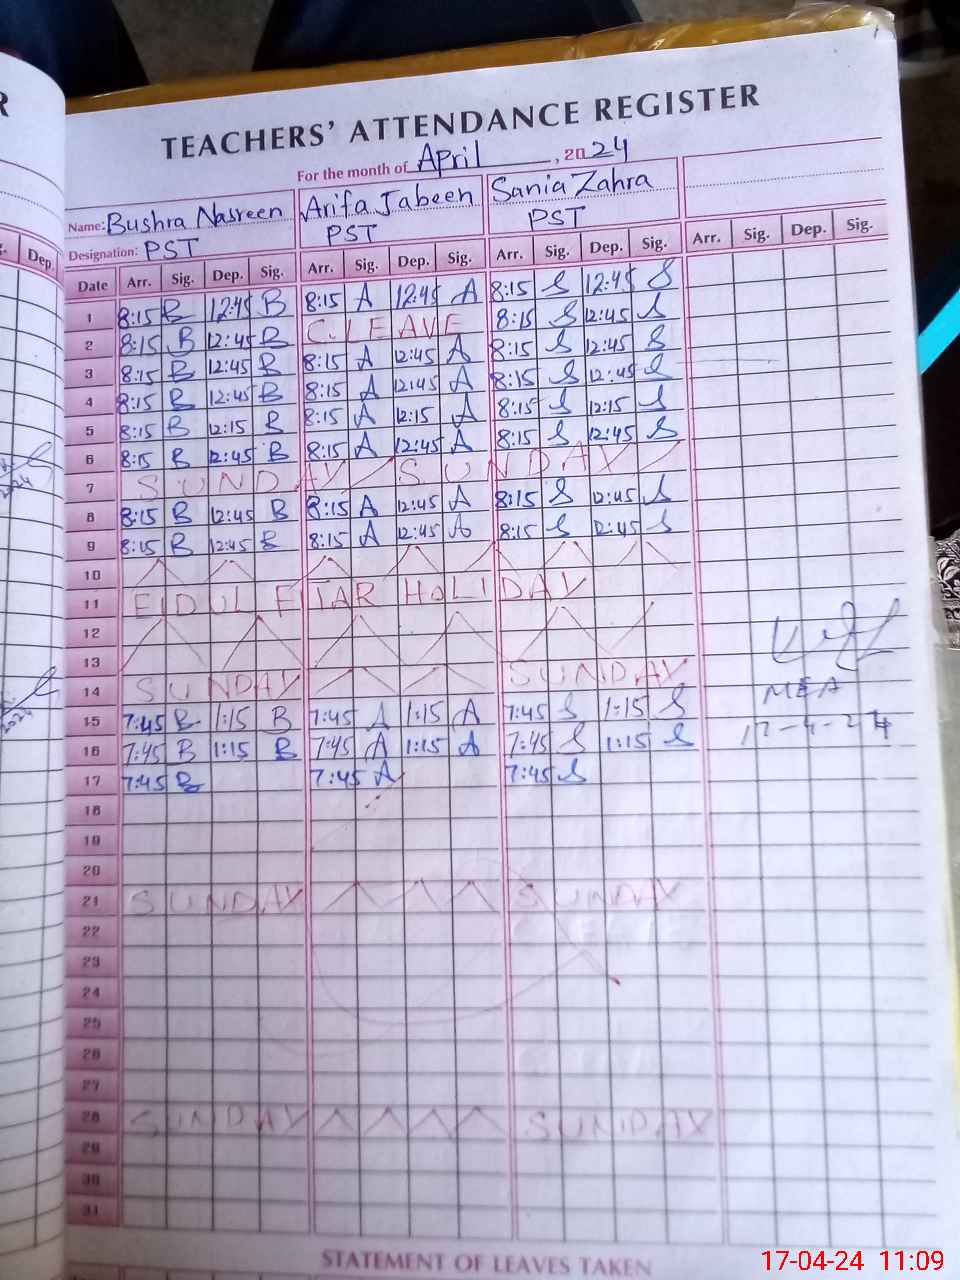 R
TEACHERS' ATTENDANCE REGISTER
For the month of April, 2024
Name: Bushra Nasreen Arifa Jabeen Sania Zahra
Designation: PST PST PST
Dep. Date Arr. Sig. Dep. Sig. Arr. Sig. Dep. Sig. Arr. Sig. Dep. Sig. Arr. Sig. Dep. Sig.
1 8:15 B 12:45 B 8:15 A 12:45 A 8:15 S 12:45 S
2 8:15 B 12:45 B C.LEAVE 8:15 S 12:45 S
3 8:15 B 12:45 B 8:15 A 12:45 A 8:15 S 12:45 S
4 8:15 B 12:45 B 8:15 A 12:45 A 8:15 S 12:45 S
5 8:15 B 12:15 B 8:15 A 12:15 A 8:15 S 12:15 S
6 8:15 B 12:45 B 8:15 A 12:45 A 8:15 S 12:45 S
7 SUNDAY SUNDAY
8 8:15 B 12:45 B 8:15 A 12:45 A 8:15 S 12:45 S
9 8:15 B 12:45 B 8:15 A 12:45 A 8:15 S 12:45 S
10
11 EIDUL FITAR HOLIDAY
12
13
14 SUNDAY SUNDAY
MEA
15 7:45 B 1:15 B 7:45 A 1:15 A 7:45 S 1:15 S
17-4-24
16 7:45 B 1:15 B 7:45 A 1:15 A 7:45 S 1:15 S
17 7:45 B 7:45 A 7:45 S
18
19
20
21 SUNDAY SUNDAY
22
23
24
25
26
27
28 SUNDAY SUNDAY
29
30
31
STATEMENT OF LEAVES TAKEN
17-04-24 11:09